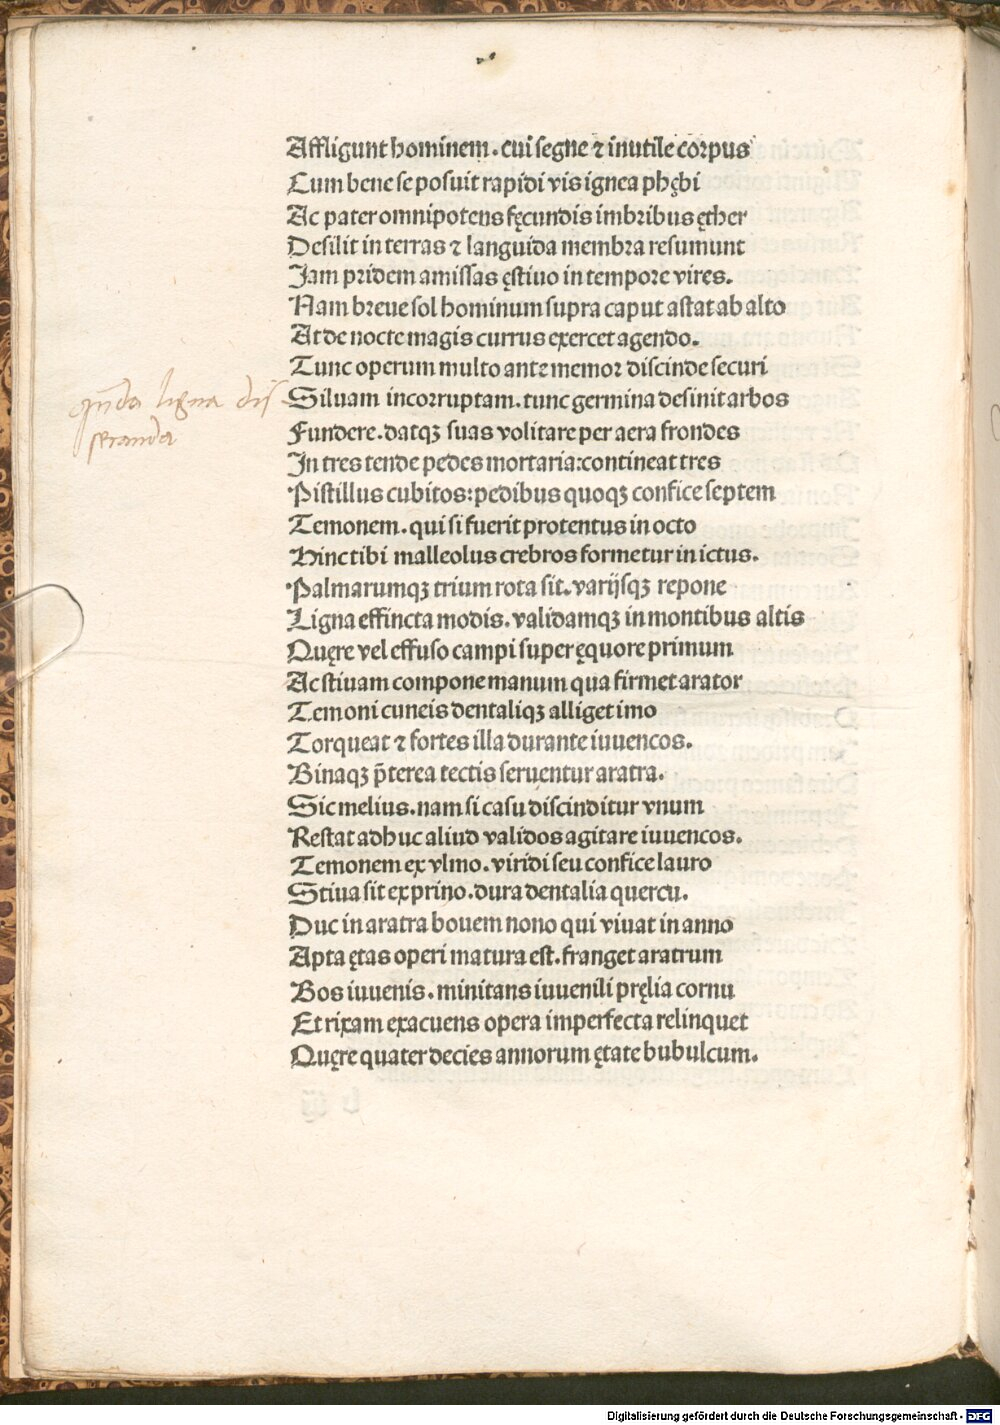 Affligunt hominem. cui segne ⁊ inutile corpus
Cum bene se posuit rapidi vis ignea phębi
Ac pater omnipotens fęcundis imbribus ęther
Desilit in terras ⁊ languida membra resumunt
Jam pridem amissas ęstiuo in tempore vires.
Nam breue sol hominum supra caput astat ab alto
At de nocte magis currus exercet agendo.
Tunc operum multo ante memor discinde securi
Siluam incorruptam. tunc germina desinit arbos
Fundere. datqꝫ suas volitare per aera frondes
In tres tende pedes mortaria: contineat tres
Pistillus cubitos: pedibus quoqꝫ confice septem
Temonem. qui si fuerit protentus in octo
Hinc tibi malleolus crebros formetur in ictus.
Palmarumqꝫ trium rota sit. varijsqꝫ repone
Ligna effincta modis. validamqꝫ in montibus altis
Quęre vel effuso campi super ęquore primum
Ac stiuam compone manum qua firmet arator
Temoni cuneis dentaliqꝫ alliget imo
Torqueat ⁊ fortes illa durante iuuencos.
Binaqꝫ p̄terea tectis seruentur aratra.
Sic melius. nam si casu discinditur vnum
Restat adhuc aliud validos agitare iuuencos.
Temonem ex vlmo. viridi seu confice lauro
Stiua sit ex prino. dura dentalia quercu.
Duc in aratra bouem nono qui viuat in anno
Apta ętas operi matura est. franget aratrum
Bos iuuenis. minitans iuuenili pręlia cornu
Et rixam exacuens opera imperfecta relinquet
Quęre quater decies annorum ętate bubulcum.
ligna dis
seranda
Digitalisierung gefördert durch die Deutsche Forschungsgemeinschaft - DFG